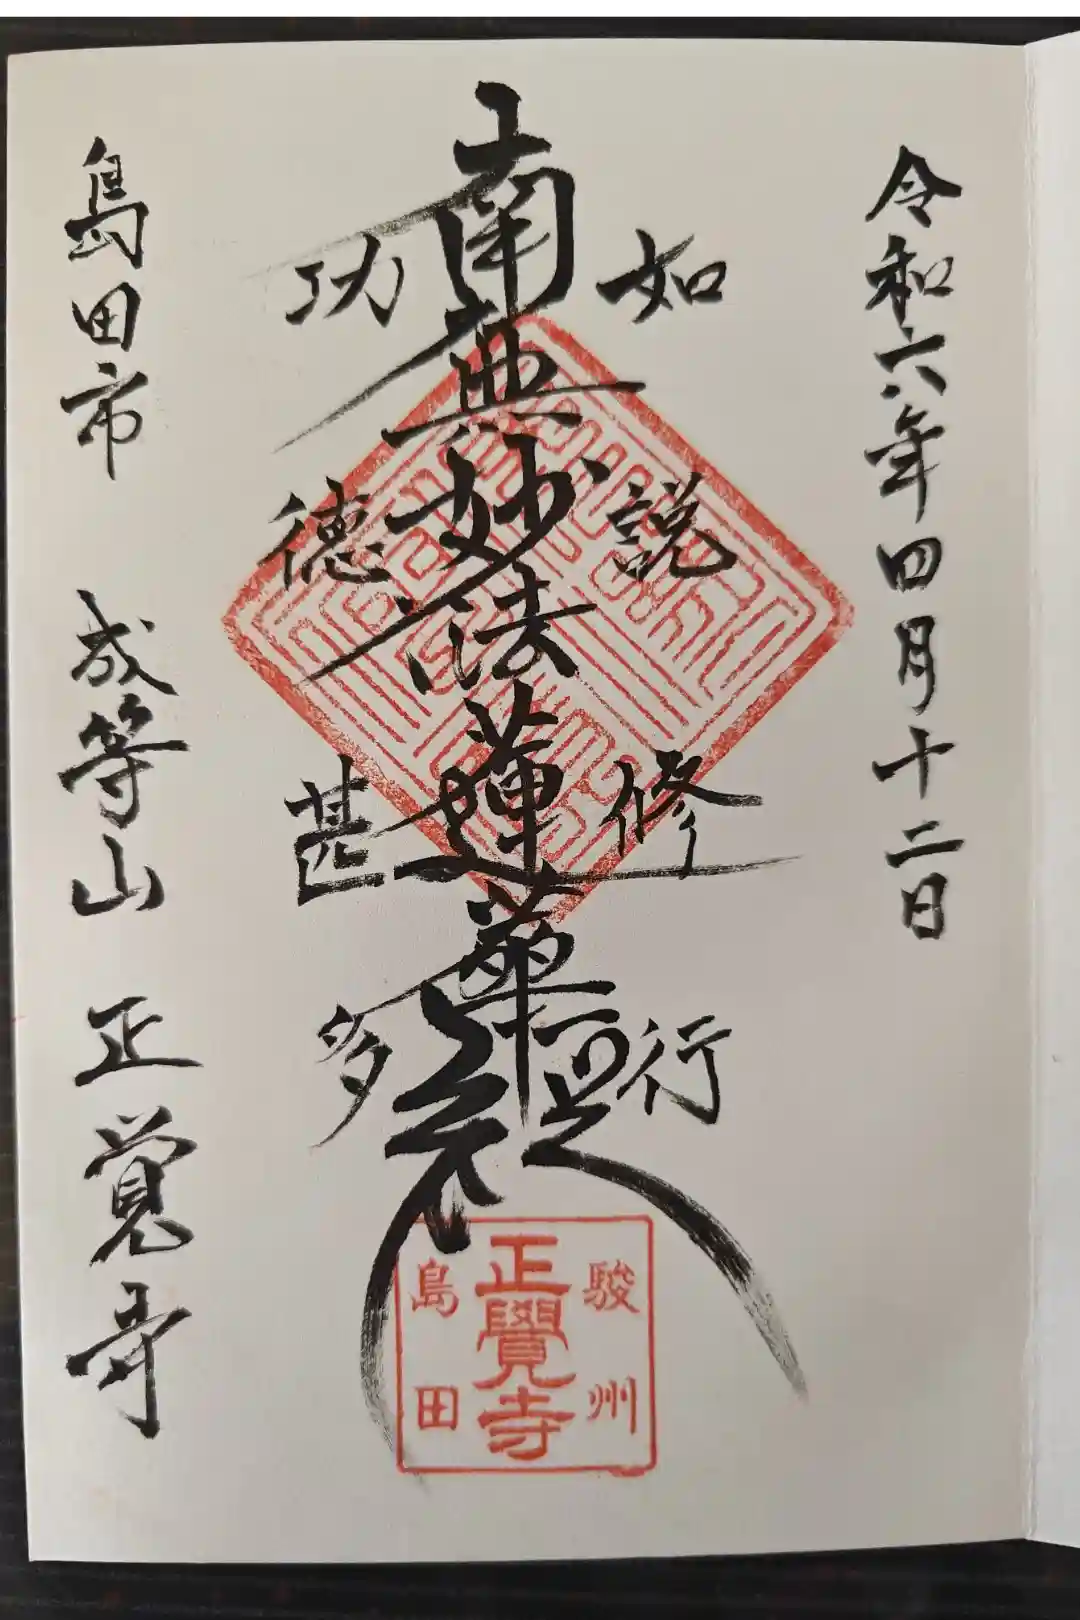 令和六年四月十二日
如説修行
南無妙法蓮華経
功徳甚多
島田市 成等山 正覚寺
駿州
正覺寺
島田